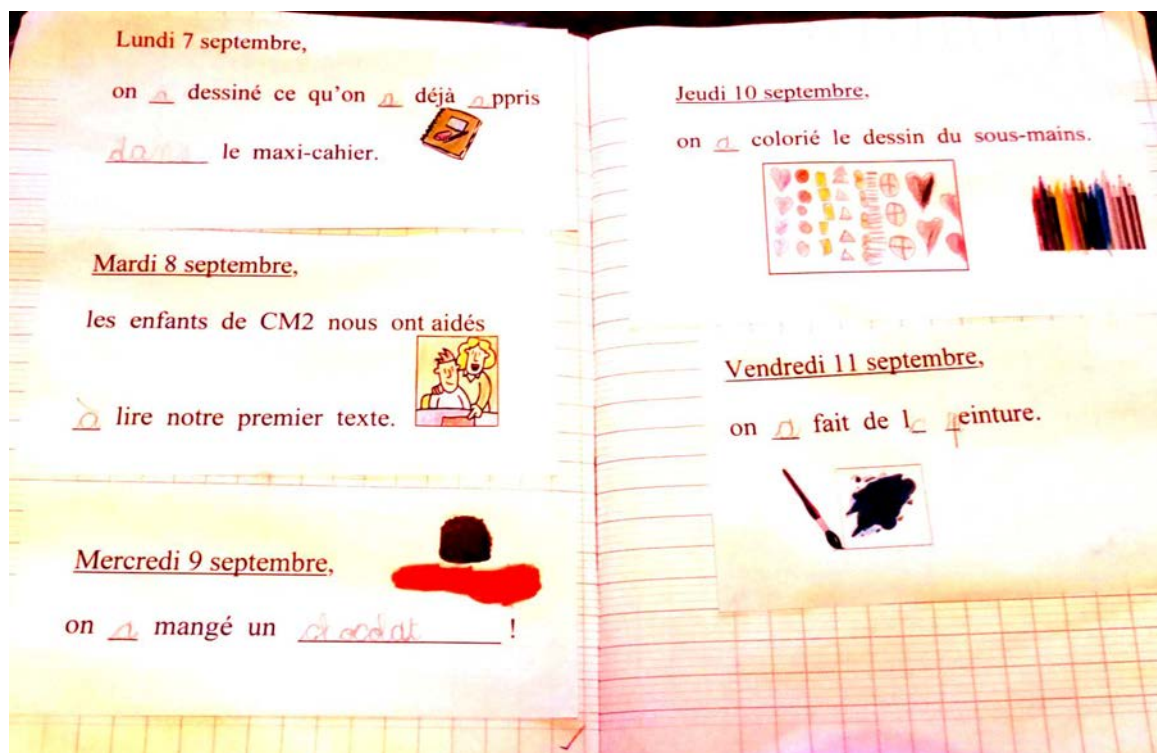 Lundi 7 septembre,
on a dessiné ce qu'on a déjà appris
dans le maxi-cahier.
Mardi 8 septembre,
les enfants de CM2 nous ont aidés
à lire notre premier texte.
Mercredi 9 septembre,
on a mangé un !
Jeudi 10 septembre,
on a colorié le dessin du sous-mains.
Vendredi 11 septembre,
on a fait de la peinture.